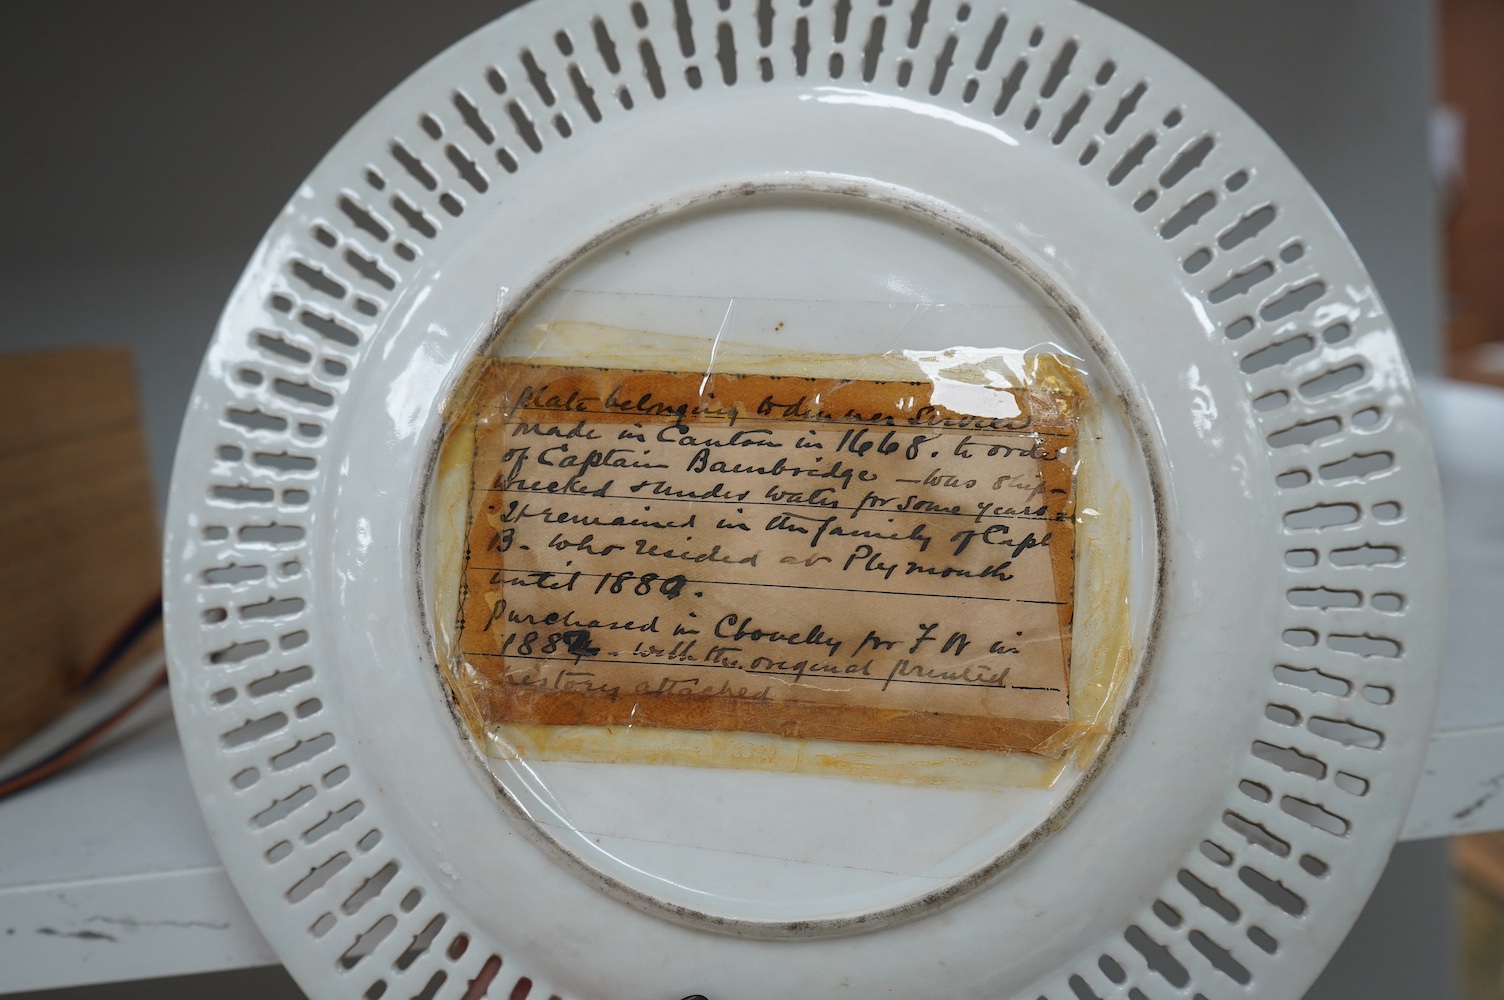 Plate belonging to dinner Service
made in Canton in 1668. to order
of Captain Bainbridge – was ship-
wrecked & under water for some years –
It remained in the family of Capt
B. who resided at Plymouth
until 1880.
Purchased in Clovelly for F W in
188 . with the original printed
history attached